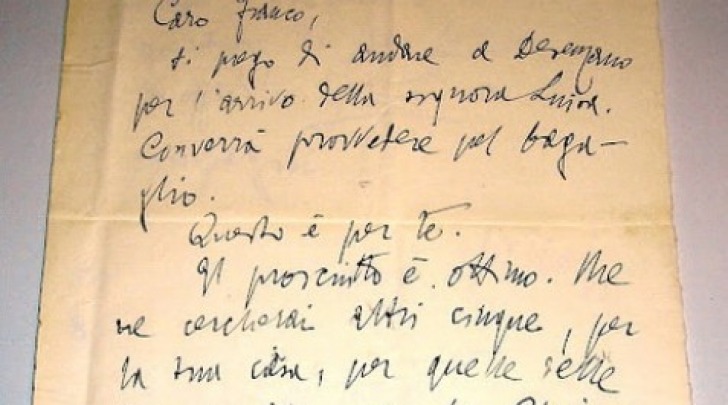 Caro Franco,
ti prego di andare a Desenzano
per l'arrivo della signora Luisa.
Converrà provvedere pel baga-
glio.
Questo è per te.
Il prosciutto è ottimo. Me
ne cercherai altri cinque, per
la tua casa, per quelle sette